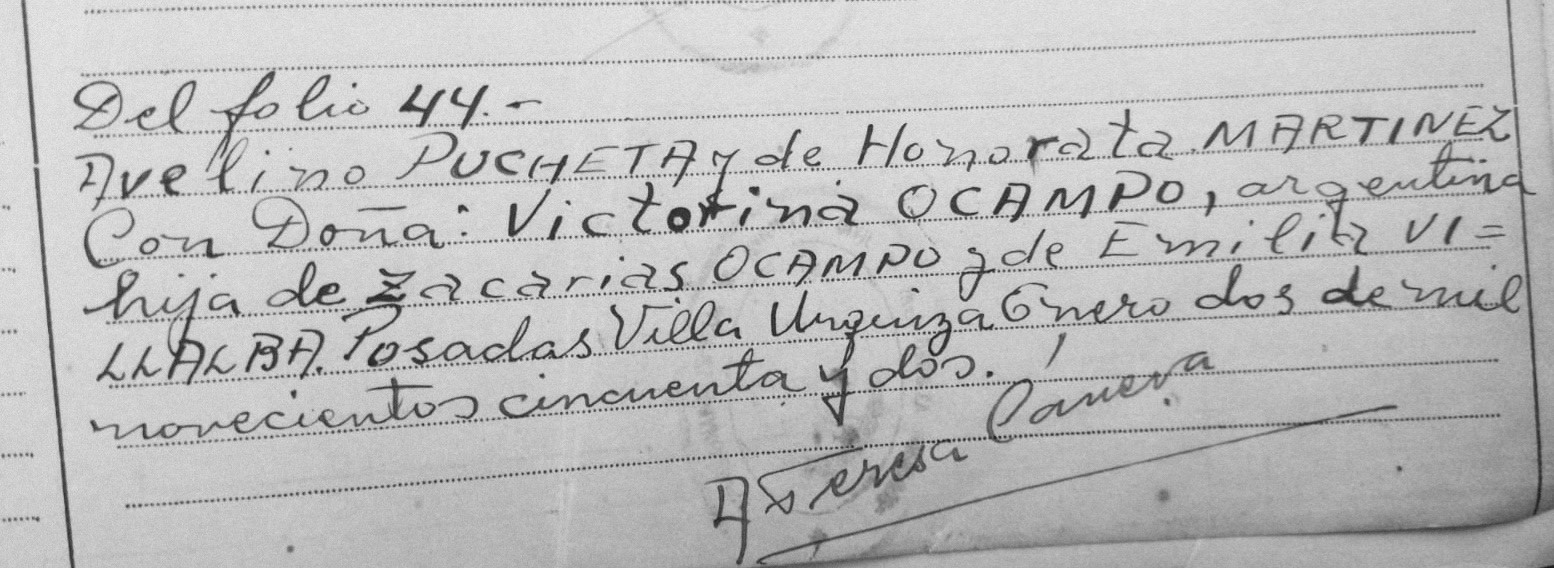 Del folio 44.-
Avelino PUCHETA y de Honorata MARTINEZ
Con Doña: Victorina OCAMPO, argentina
hija de Zacarias OCAMPO y de Emilia VI=
LLALBA. Posadas Villa Urquiza Enero dos de mil
novecientos cincuenta y dos.
Teresa